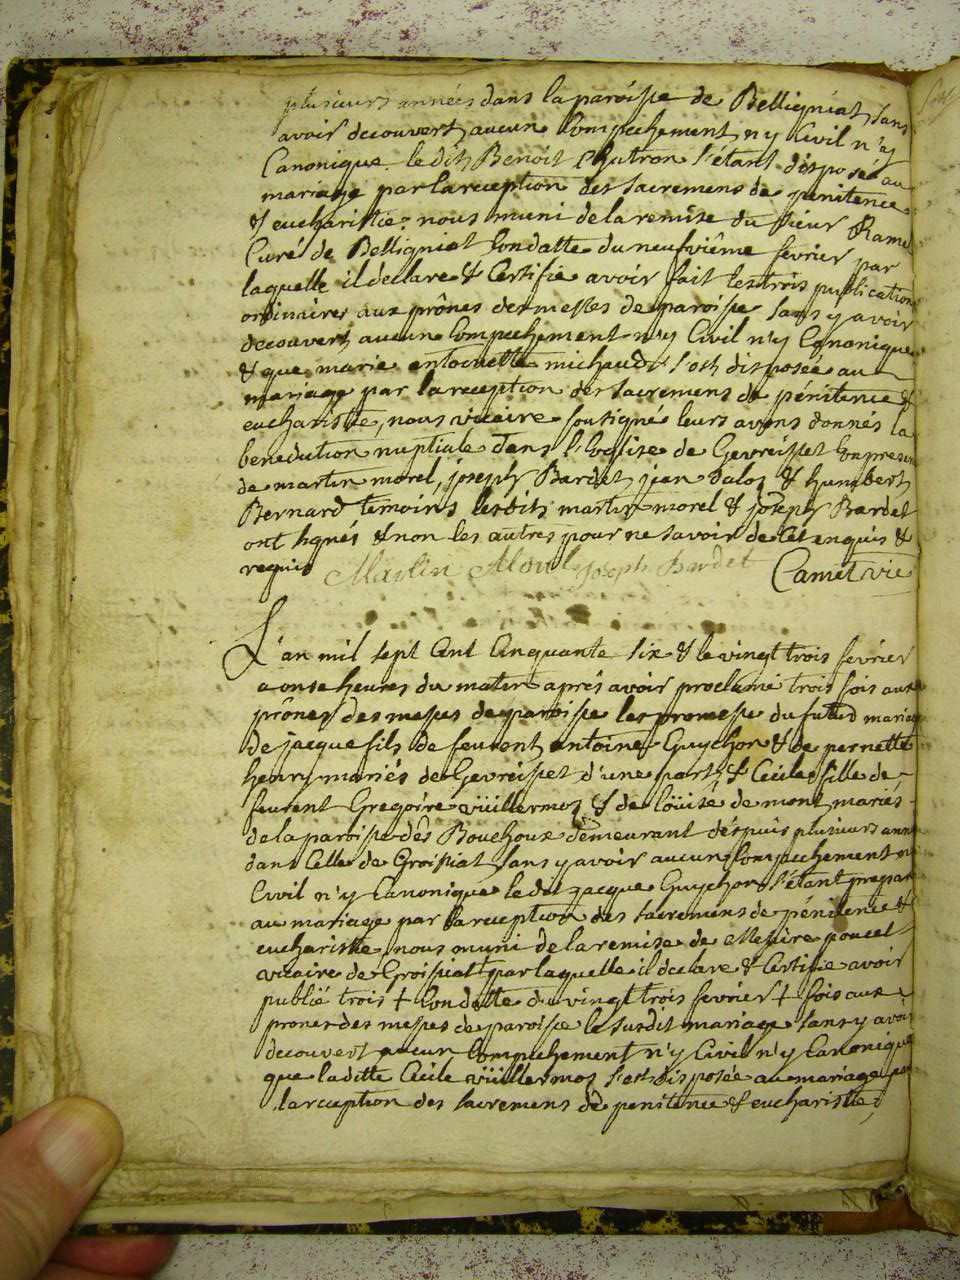 plusieurs années dans la paroisse de Belligniat, sans
avoir decouvert aucun Empechement n'y Civil n'y
Canonique. ledit Benoit Chatron s'étant disposé au
mariage par la reception des sacremens de penitence
& eucharistie: nous muni de la remise du sieur Rame
Curé de Belligniat Condatte du neufvième fevrier par
laquelle il declare & Certifie avoir fait les trois publication
ordinaires aux prônes des messes de paroisse sans y avoir
decouvert aucun Empechement n'y Civil n'y Canonique
& que marie antoinette michaud s'est disposée au
mariage par la reception des sacremens de pénitence &
eucharistie, nous vicaire soussigné leurs avons donnés la
benediction nuptiale dans l'Eglise de Gevreisset Enpresen
de martin morel, joseph Bardet, jean &  humbert
Bernard temoins lesdits martin morel & joseph Bardet
ont signés & non les autres pour ne savoir de Ce enquis &
requis Martin Morel joseph Bardet Camet vic
L'an mil sept Cent Cinquante six & le vingt trois fevrier
a onse heures du matin aprés avoir proclamé trois fois aux
prônes des messes de paroisse les promesse du futur mariage
de jacque fils de feu Antoine Guychon & de pernette
henry mariés de Gevreisset d'une part, & Cecile fille de
feu Gregoire vüillermoz & de Loüise de mont mariés
de la paroisse dês Bouchoux demeurant dépuis plusieurs anné
dans Celle de Groissiat, sans y avoir aucun Empechement n'y
Civil n'y Canonique ledit jacque Guychon s'étant preparé
au mariage par la reception des sacremens de pénitence &
eucharistie nous muni de la remise de Messire poncet
vicaire de Groissiat par laquelle il declare & Certifie avoir
publié trois + Condatte du vingt trois fevrier + fois aux
prones des messes de paroisse le susdit mariage sans y avoir
decouvert aucun Empechement n'y Civil n'y Canonique
que laditte Cecile vüillermoz s'est disposée au mariage par
la reception des sacremens de penitence & eucharistie,